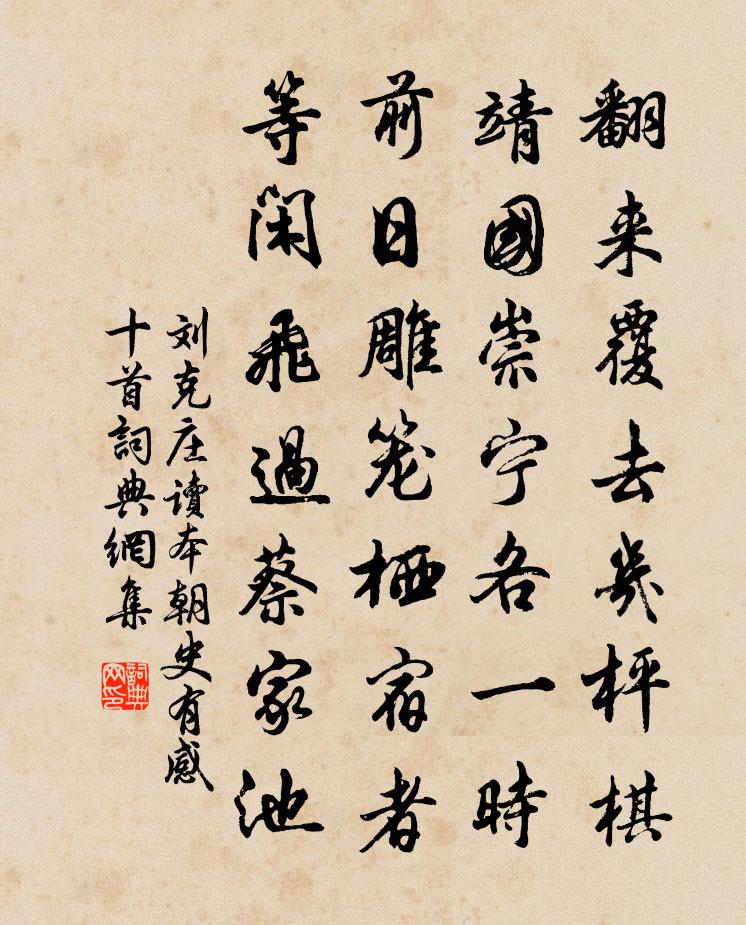 翻来覆去幾枰棋
靖國崇宁各一時
前日雕笼栖宿者
等闲飛過蔡家池
刘克庄讀本朝史有感
十首詞典網集
詞典网印